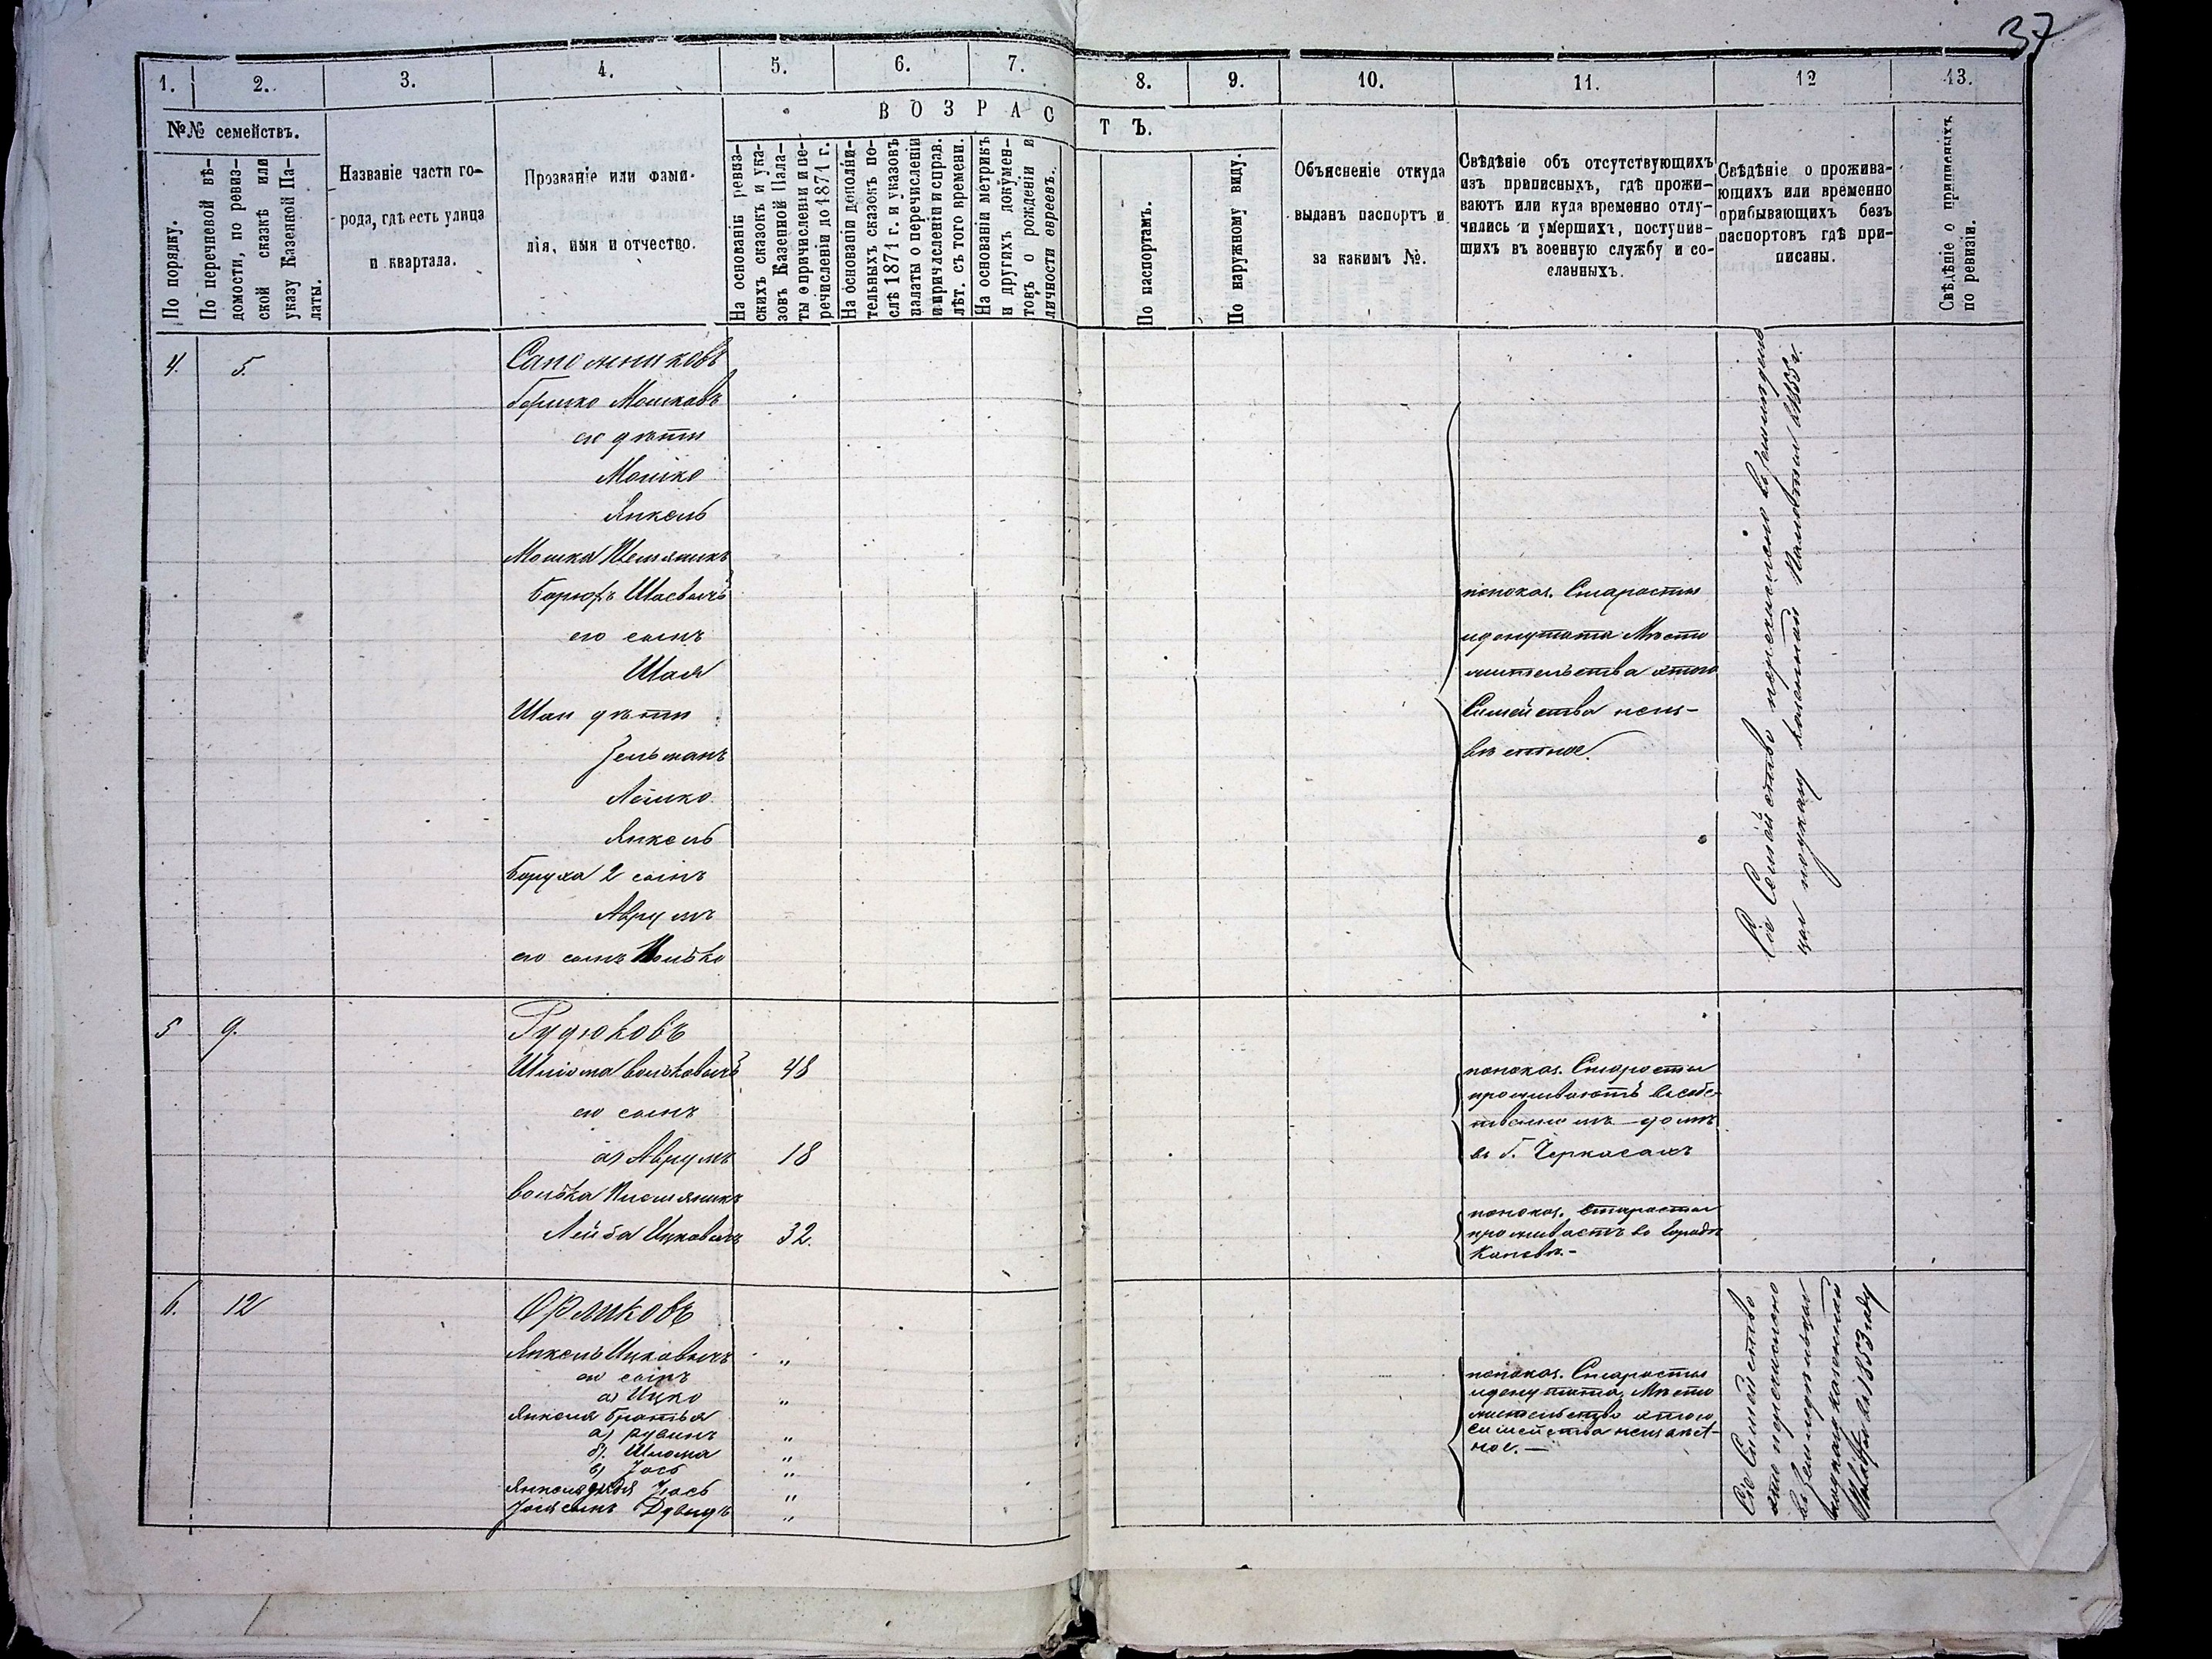 37
1. 2. 3. 4. 5. 6. 7. 8. 9. 10. 11. 12 13.
№№ семействъ.
По порядку.
По перечневой вѣ-
домости, по ревиз-
ской сказкѣ или
указу Казенной Па-
латы.
Названіе части го-
рода, гдѣ есть улица
и квартала.
Прозваніе или фами-
лія, имя и отчество.
ВОЗРАСТЪ.
На основаніи ревиз-
скихъ сказокъ и ука-
зовъ Казенной Пала-
ты о причисленіи и пе-
речисленіи до 1871 г.
На основаніи дополни-
тельныхъ сказокъ по-
слѣ 1871 г. и указовъ
палаты о перечисленіи
и причисленіи и справ.
лѣт. съ того времени.
На основаніи метрикъ
и другихъ докумен-
товъ о рожденіи и
личности евреевъ.
По паспортамъ.
По наружному виду.
Объясненіе откуда
выданъ паспортъ и
за какимъ №.
Свѣдѣніе объ отсутствующихъ
изъ приписныхъ, гдѣ прожи-
ваютъ или куда временно отлу-
чились и умершихъ, поступив-
шихъ въ военную службу и со-
сланныхъ.
Свѣдѣніе о прожива-
ющихъ или временно
прибывающихъ безъ
паспортовъ гдѣ при-
писаны.
Свѣдѣніе о приписныхъ
по ревизіи.
4. 5. Сапожниковъ
Боришко Мошковъ
его дѣти
Мошко
Янкель
Мошка Племяникъ
Борюхъ Шаевичъ
его сынъ
Шая
Шаи дѣти
Зельманъ
Лейко
Янкель
Боруха 2 сынъ
Аврумъ
его сынъ Волько
попоказ. Старосты
и депутата Мѣсто
жительства этого
Семейства неиз-
вѣстное.
Сіе Семейство перечислено въ земледель
цы по указу казенной Палаты въ 1855 г.
5 9. Рудюковъ
Шліома Вольковичъ 48
его сынъ
а) Аврумъ 18
Волька Племяникъ
Лейба Ицковичъ 32.
попоказ. Старосты
проживаютъ въ собс-
твенномъ домѣ
въ Г. Черкасахъ
попоказ. старосты
проживаетъ въ городѣ
Каневѣ.-
6. 12 Орликовъ
Янкель Ицковичъ "
его сынъ
а) Ицко "
Янкеля братья
а) Рувинъ "
б). Шлома "
в) Іось "
Янкеля дядя Іось "
Іося сынъ Дувидъ "
попоказ. Старосты
и депутата, Мѣсто
жительство этого
семейства неизвѣст-
ное.-
Сіе Семейство
перечислено
въ земледельцы
по указу казенной
Палаты въ 1853 году